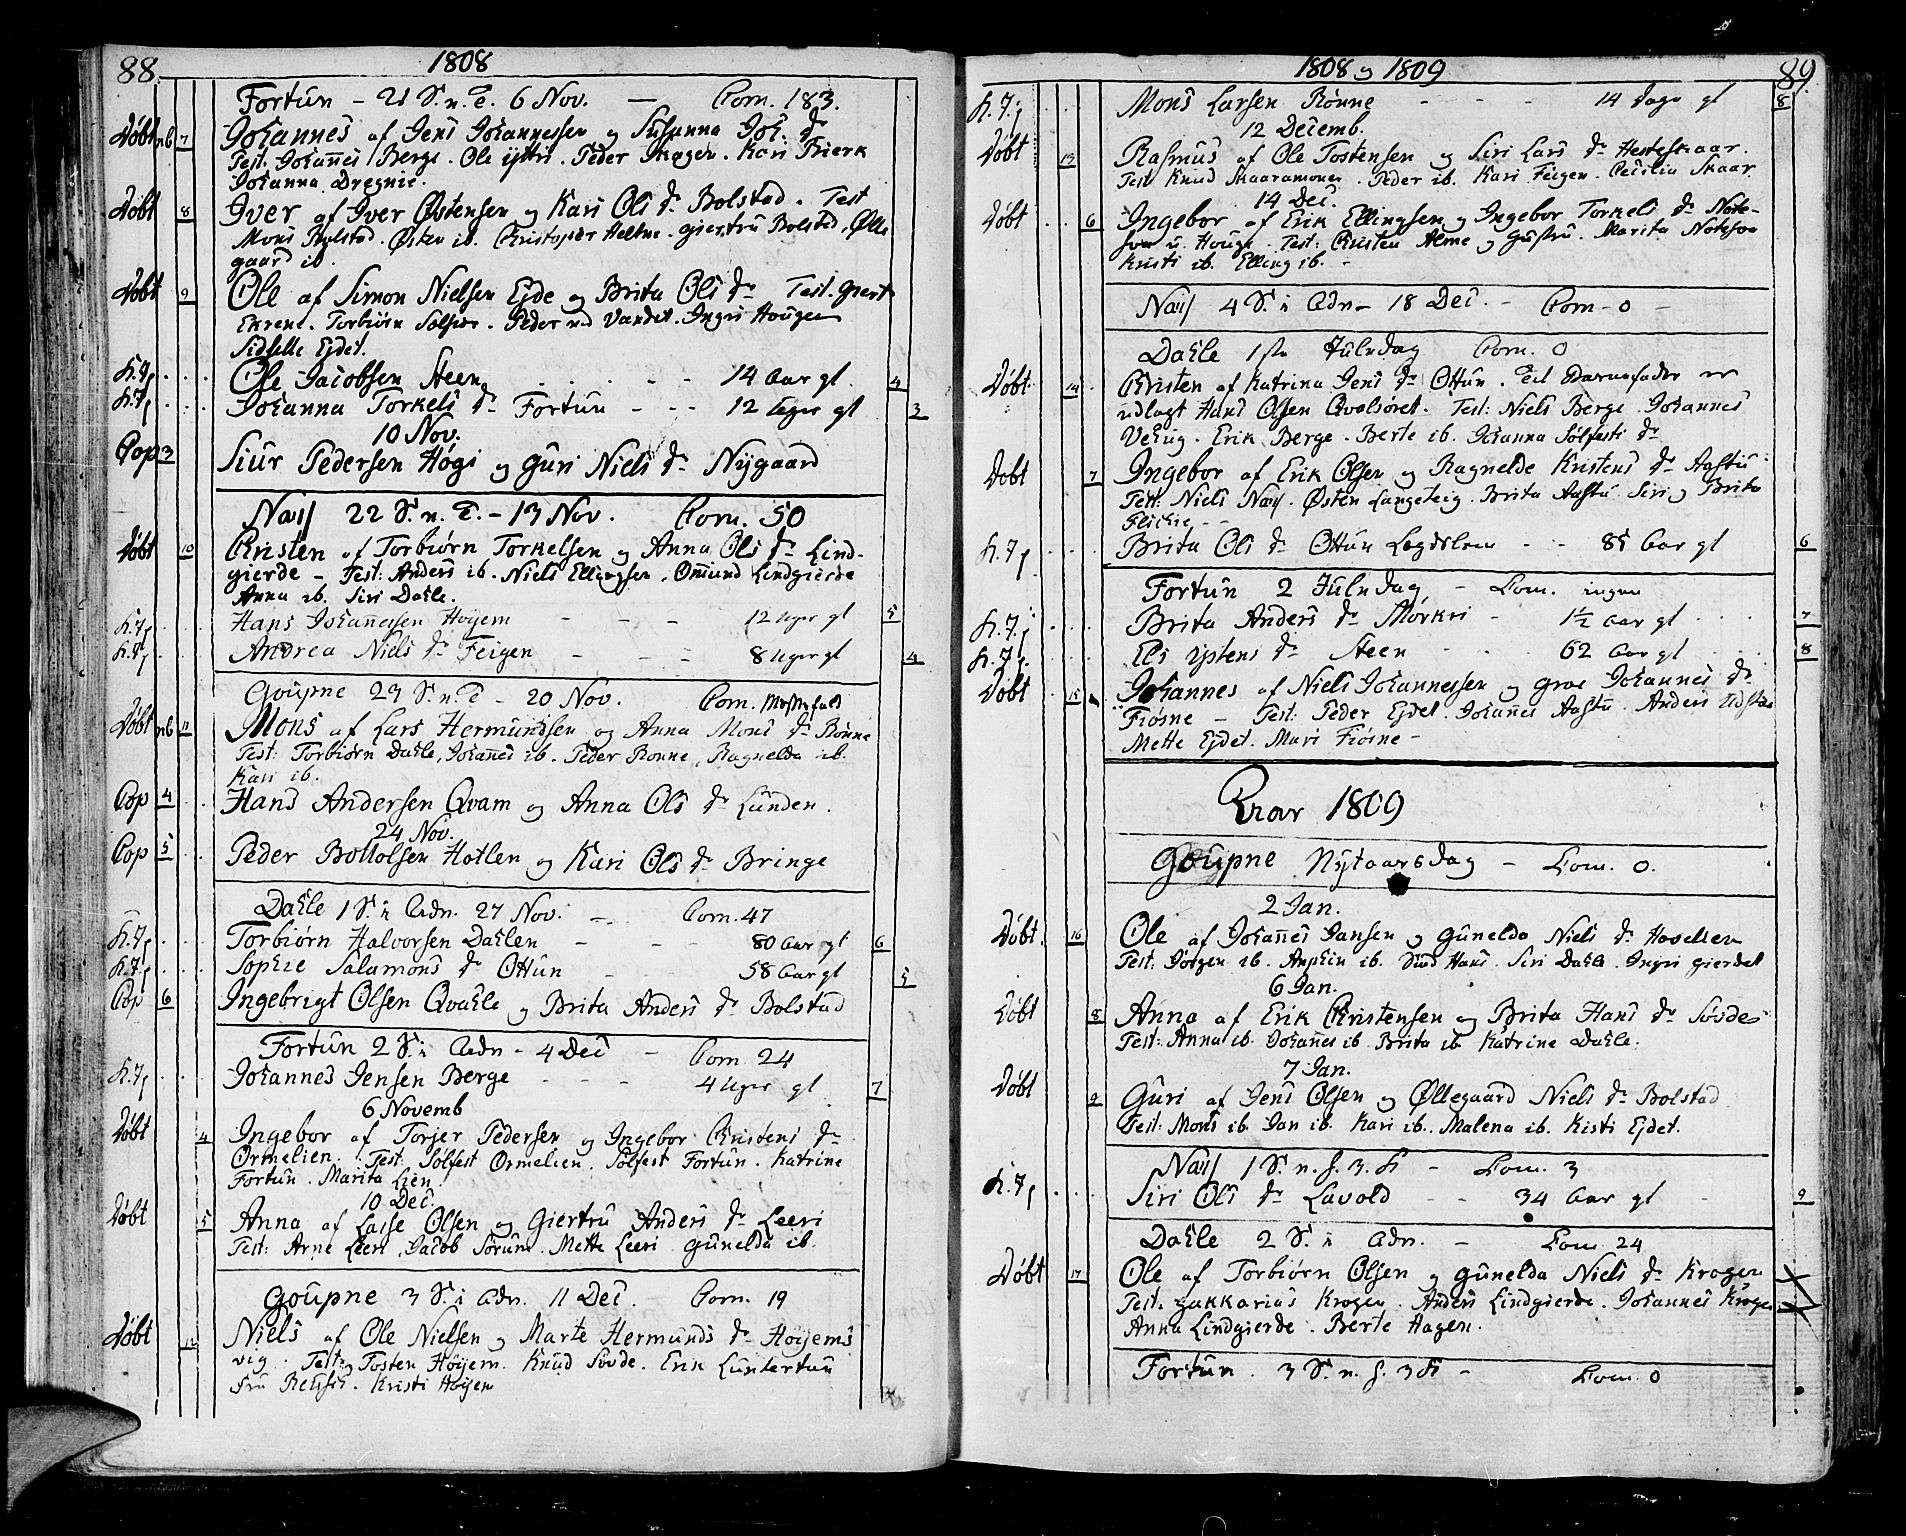 88 1808
Fortun - 21 S. n. T. 6 Nov. — Com. 183.
Døbt nb 7 Johannes af Jens Johannessen og Susanna Joh. dr
Test. Johannes Berge. Ole ystri. Peder Skagen. Kari
Johanna Dregnie.
Døbt 8 Iver af Iver Østensen og Kari Ols dr Bolstad. Test
Mons Bolstad. Østen ib. Christopher. giertru Bolstad, Ølle
gaard ib.
Døbt 9 Ole af Simon Nielsen Ejde og Brita Ols dr Test. giert
Ekrene. Torbiørn. Peder ved Vandet. Ingri Hougen
Sidselle Ejdet.
K. J. Ole Jacobsen Steen - - 14 Aar gl. 4
K. J. Johanna Torkels dr Fortun - - - 12 Uger gl 3
10 Nov.
Cop 3 Siur Pedersen Høgi og Guri Niels dr Nygaard
Næss 22 S. n. T. - 13 Nov. Com. 50
Døbt 10 Kristen af Torbiørn Torkelsen og Anna Ols dr Lind-
gierde - Test: Anders ib. Niels Ellingsen, Omund Lindgierde
Anna ib. Siri Dahle.
K. J. Hans Johannessen Høyem - - - 12 Uger gl 5
K. J. Andrea Niels dr Feigen - - - 8 Uger gl 4
Goupne 23 S. n. T - 20 Nov. Com.
Døbt nb 11 Mons af Lars Hermundsen og Anna Mons dr Rønne
Test: Torbiørn Dahle, Johannes ib. Peder Ronne, Ragnelda ib.
Kari ib.
Cop 4 Hans Andersen Qvam og Anna Ols dr Lunden.
24 Nov.
Cop 5 Peder Bottolsen Hotlen og Kari Ols dr Bringe
Dahle 1 S. i Adn. 27 Nov. - Com. 47
K. J. Torbiørn Halvorsen Dahlen - - 80 Aar gl 6
K. J. Sophie Salamons dr Ottun - - 58 Aar gl 5
Cop 6 Ingebrigt Olsen Qvahle og Brita Anders dr Bolstad
Fortun 2 S. i Adn - 4 Dec - Com. 24
K. J. Johannes Jensen Berge - - - 4 Uger gl 7
6 Novemb
Døbt 4 Ingebor af Torjer Pedersen og Ingebor Kristens dr
Ormelien. Test: Sølfest Ormelien. Sølfest Fortun. Katrine
Fortun. Marita Lien.
10 Dec.
Døbt 5 Anna af Lasse Olsen og Giertru Anders dr Leeri
Test: Arne Leeri, Jacob Sørum. Mette Leeri gunelda ib.
Goupne 3 S. i Adn. 11 Dec. Com. 19
Døbt 12 Niels af Ole Nielsen og Marte Hermunds dr Høyems
vig. Test: Tosten Høyem. Knud Sovde. Erik Luntertun
Fru. Kristi Høyem
1808 og 1809 89.
K. J. Mons Larsen Rønne - - - 14 Dage gl 8
12 Decemb.
Døbt 13 Rasmus af Ole Tostensen og Siri Lars dr Hesteskaar.
Test Knud Skaaramonen. Peder ib. Kari Feigen. Cecilia Skaar
14 Dec.
Døbt 6 Ingebor af Erik Ellingsen og Ingebor Torkels dr Note-
Houge. Test: Kristen Alme og Gustru. Marita
Kristi ib. Elling ib. -
Næss 4 S. i Adn - 18 Dec. - Com - 0 -
Dahle 1ste Juledag Com. 0
Døbt 14 Kristen af Katrina Jens dr Ottun. Til Barnefader er
udlagt Hans Olsen Qvalsøret. Test: Niels Berge Johannes
Vehug. Erik Berge. Berte ib. Johanna Sølfesti dr
Døbt 7 Ingebor af Erik Olsen og Ragnelde Kristens dr Aastu
Test: Niels Næss. Østen Langeteig. Brita Aastu Siri og Brita
K. J. Brita Ols dr Ottun - - 85 Aar gl 6
Fortun 2 Juledag - Com. ingen
K. J. Brita Anders dr Mørkri - 1½ Aar gl 7
K. J. Els ystens dr Steen - - 62 Aar gl 8
Døbt 15 Johannes af Niels Johannessen og groe Johannes dr
Fiøsne - Test: Peder Ejdet. Johannes Aastu. Anders
Mette Ejdet. Mari Fiøsne -
Aar 1809
Goupne Nytaarsdag - Com. 0.
2 Jan.
Døbt. 16 Ole af Johannes Jansen og gunelda Niels dr
Test: Jørgen ib. Anphin ib. Siud Hans. Siri Dahle. Ingri gierdet
6 Jan.
Døbt 8 Anna af Erik Kristensen og Brita Hans dr Søvde
Test: Anna ib. Johannes ib Brita ib Katrine Dahle.
7 Jan.
Døbt 9 Guri af Jens Olsen og Øllegaard Niels dr Bolstad
Test: Mons ib Jan ib. Kari ib. Malena ib. Kisti Ejdet.
Næss 1 S. n. h. 3. K - Com. 3
K. J. Siri Ols dr Lavold - - 34 Aar gl - 9
Dahle 2 S. i Adn. - Com 24
Døbt 17 Ole af Torbiørn Olsen og gunelda Niels dr Krogen
Test. zakkarias Krogen. Anders Lindgierde. Johannes Krogen
Anna Lindgierde. Berte Hagen.
Fortun. 3 S. n. h. 3 K - Com. 0